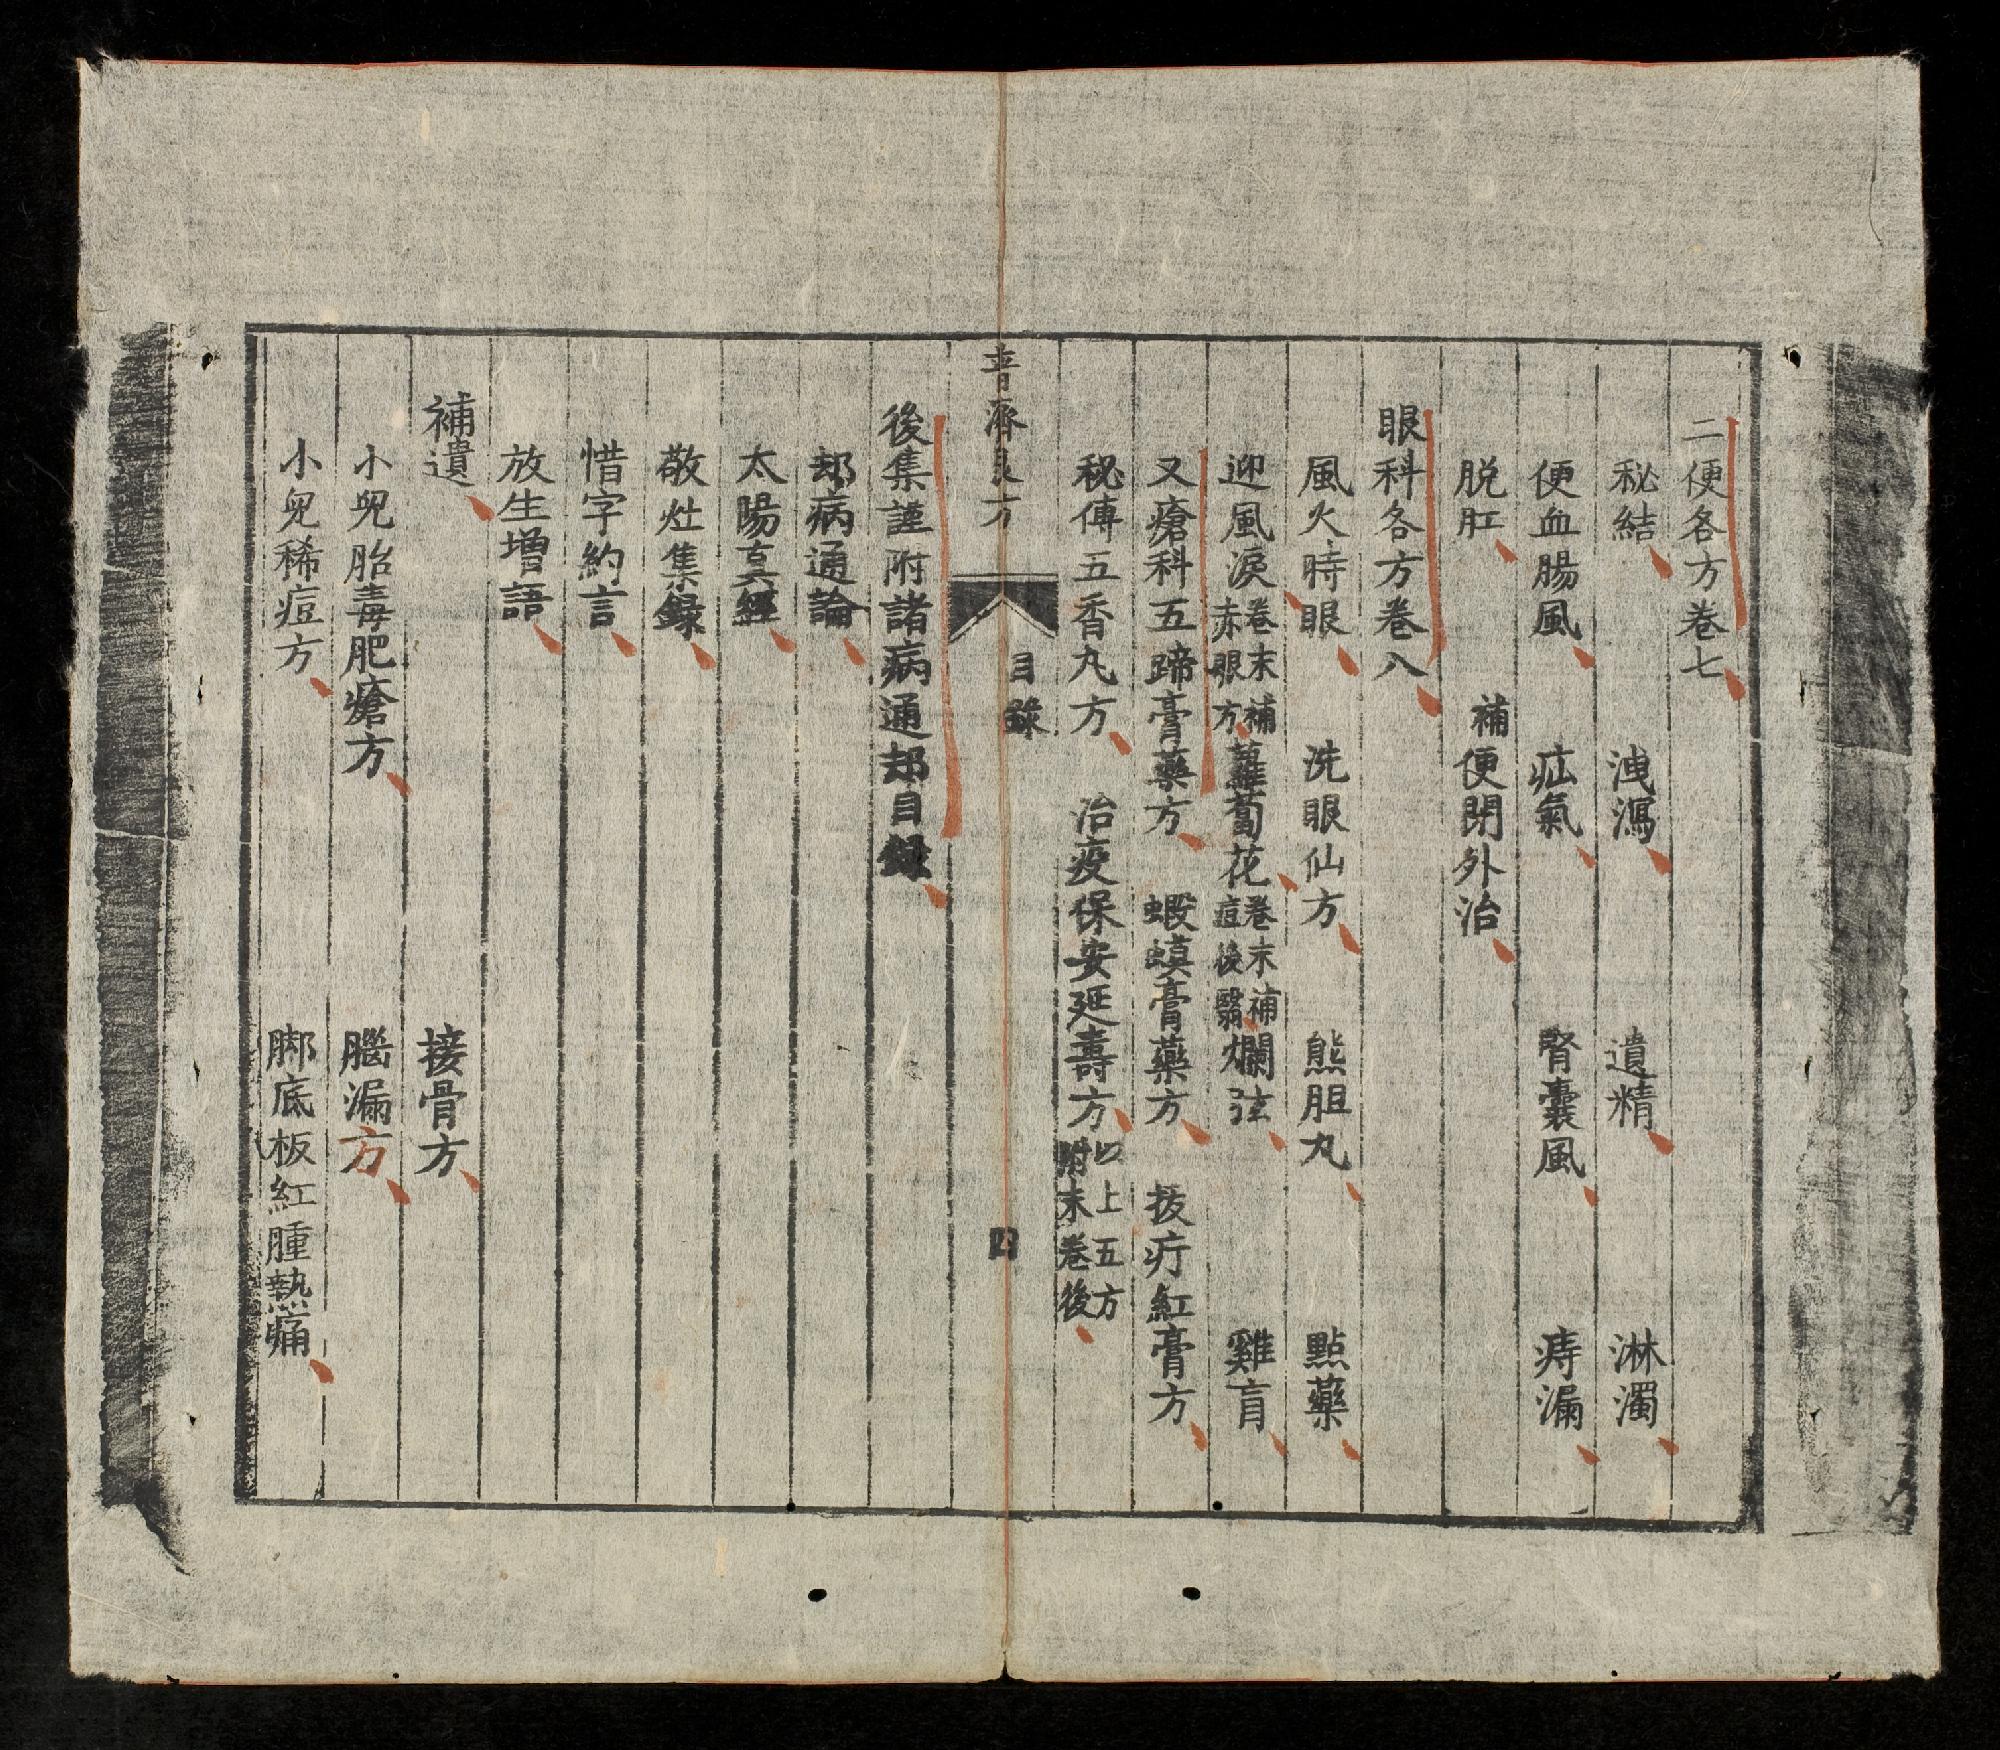 二便各方卷七
秘結　洩瀉　遺精　淋濁
便血腸風　疝氣　腎囊風　痔漏
脱肛　補便閉外治
眼科各方卷八
風火時眼　洗眼仙方　熊胆丸　點藥
迎風淚卷末補赤眼方　蘿蔔花卷末補痘後翳　爛弦　雞盲
又瘡科五蹄膏藥方　蝦蟆膏藥方　拔疔紅膏方
秘傳五香丸方　治疫保安延壽方以上五方附末卷後
濟良方
目錄
四
後集謹附諸病通却目録
却病通論
太陽真經
敬灶集録
惜字約言
放生增語
補遺　接骨方
小兒胎毒肥瘡方　腦漏方
小兒稀痘方　脚底板紅腫熱痛